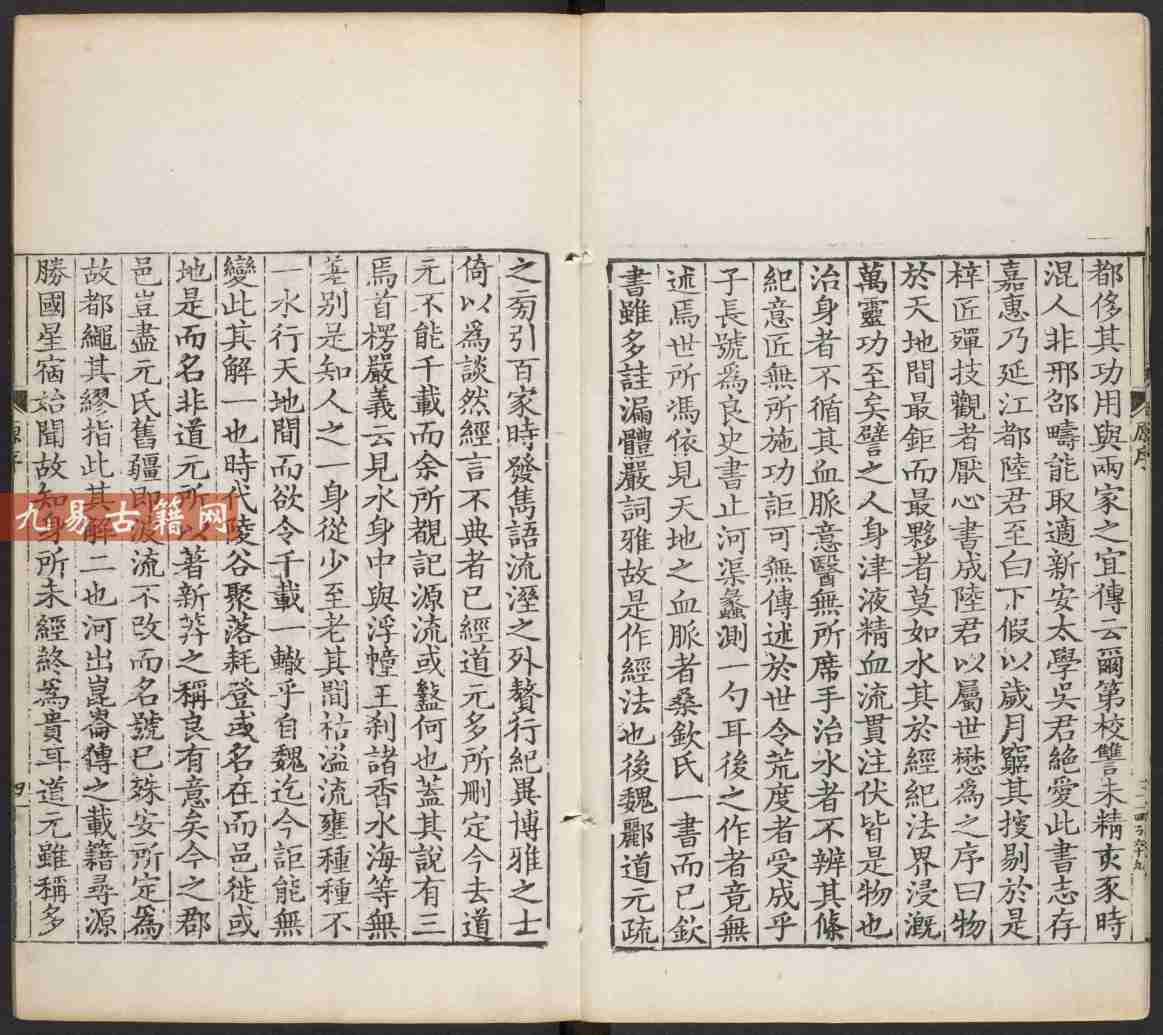 都侈其功用與兩家之宜傳云爾第校讐未精亥豕時
混人非邢邵疇能取適新安太學吳君絶愛此書志存
嘉惠乃延江都陸君至白下假以歲月窮其搜剔於是
梓匠殫技觀者厭心書成陸君以屬世懋為之序曰物
於天地間最鉅而最夥者莫如水其於經紀法界浸漑
萬靈功至矣譬之人身津液精血流貫注伏皆是物也
治身者不循其血脈意醫無所席手治水者不辨其條
紀意匠無所施功詎可無傳述於世令荒度者受成乎
子長號為良史書止河渠蠡測一勺耳後之作者竟無
述焉世所馮依見天地之血脈者桑欽氏一書而已欽
書雖多註漏體嚴詞雅故是作經法也後魏酈道元疏
原序
之旁引百家時發雋語流溼之外贅行紀異博雅之士
倚以為談然經言不典者已經道元多所刪定今去道
元不能千載而余所覩記源流或盭何也蓋其說有三
焉首楞嚴義云見水身中與浮幢王刹諸香水海等無
差别是知人之一身從少至老其間枯溢流壅種種不
一水行天地間而欲令千載一轍乎自魏迄今詎能無
變此其解一也時代陵谷聚落耗登或名在而邑徙或
地是而名非道元所以著新莽之稱良有意矣今之郡
邑豈盡元氏舊疆即波流不改而名號已殊安所定為
故都繩其繆指此其解二也河出崑崙傳之載籍尋源
勝國星宿始聞故知身所未經終為貴耳道元雖稱多
原序
四
九易古籍网